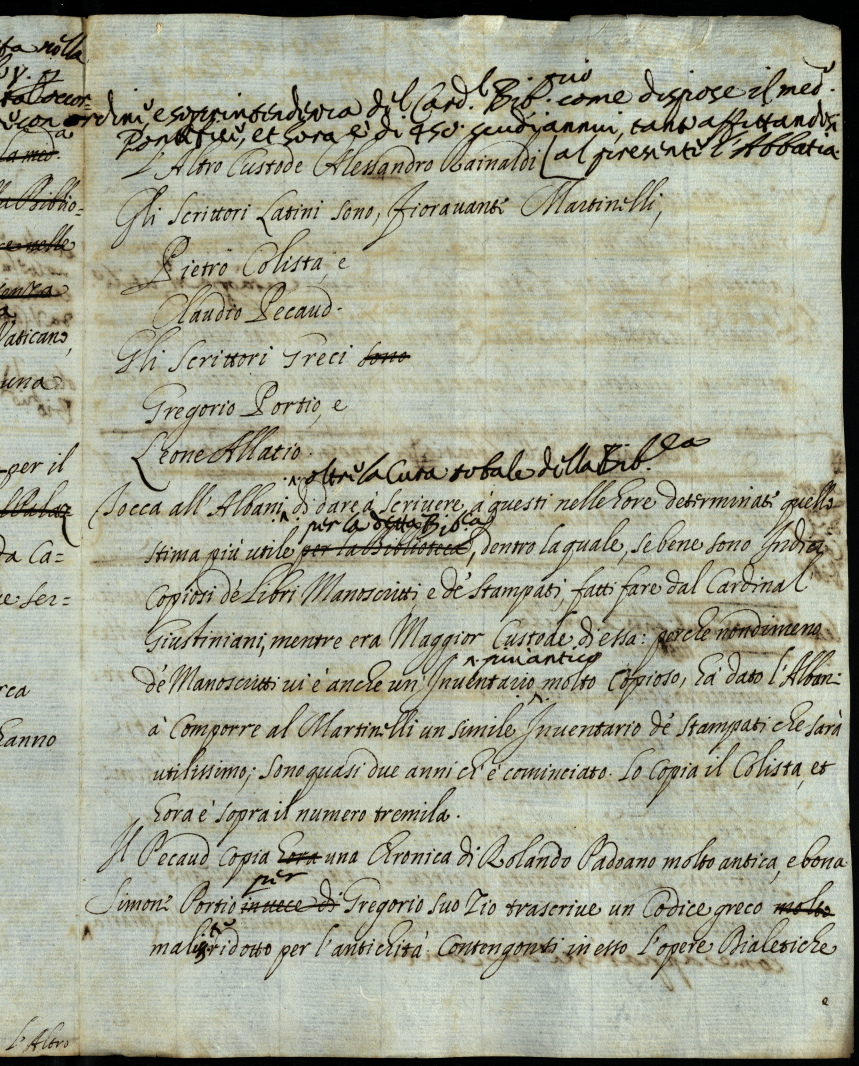 ordini e soprintendenza del Card.l Bib.rio come dispose il med.o
Pontefice, et hora è di 450. scudi annui, tanto affittandosi
L'Altro Custode Alessandro Rainaldi al presente l'Abbatia
Gli Scrittori Latini sono, Fioravante Martinelli,
Pietro Colista, e
Claudio Pecaud.
Gli Scrittori Greci sono
Gregorio Portio, e
Leone Allatio.
oltre la Cura totale della Bib.ca
Tocca all'Albani di dare à scrivere, à questi nelle hore determinate quello
per la detta Bib.ca
stima più utile per la Biblioteca, dentro la quale, se bene sono Indici
Copiosi de Libri Manoscritti e de Stampati, fatti fare dal Cardinal
Giustiniani, mentre era Maggior Custode d'essa: perche nondimeno
più antico
de Manoscritti vi è anche un Inventario molto Copioso, hà dato l'Alban:
à Comporre al Martinelli un simile Inventario de Stampati che sarà
utilissimo; sono quasi due anni ch'è cominciato. Lo Copia il Colista, et
hora è sopra il numero tremila.
Il Pecaud Copia hora una Chronica di Rolando Padoano molto antica, e bona
per
Simone Portio invece di Gregorio suo Zio trascrive un Codice greco molto
mal ridotto per l'antichità Contengonsi in esso l'opere Dialetiche
e
ta nella
la med.a
la Biblio=
re nelle
Vaticano,
una
per il
da Ca=
e ser=
rca
hanno
L'Altro